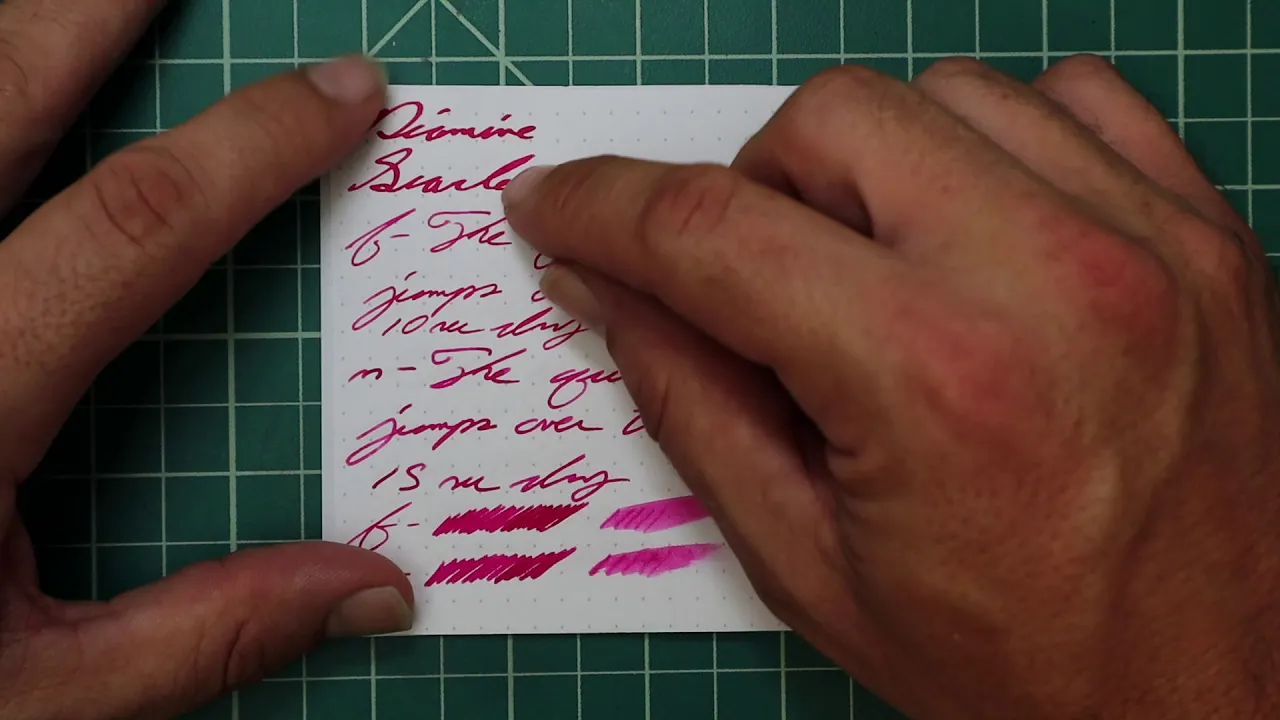 Diamine
Scarle
f- The
jumps
10 sec dry
n- The qui
jumps over
15 sec dry
f-